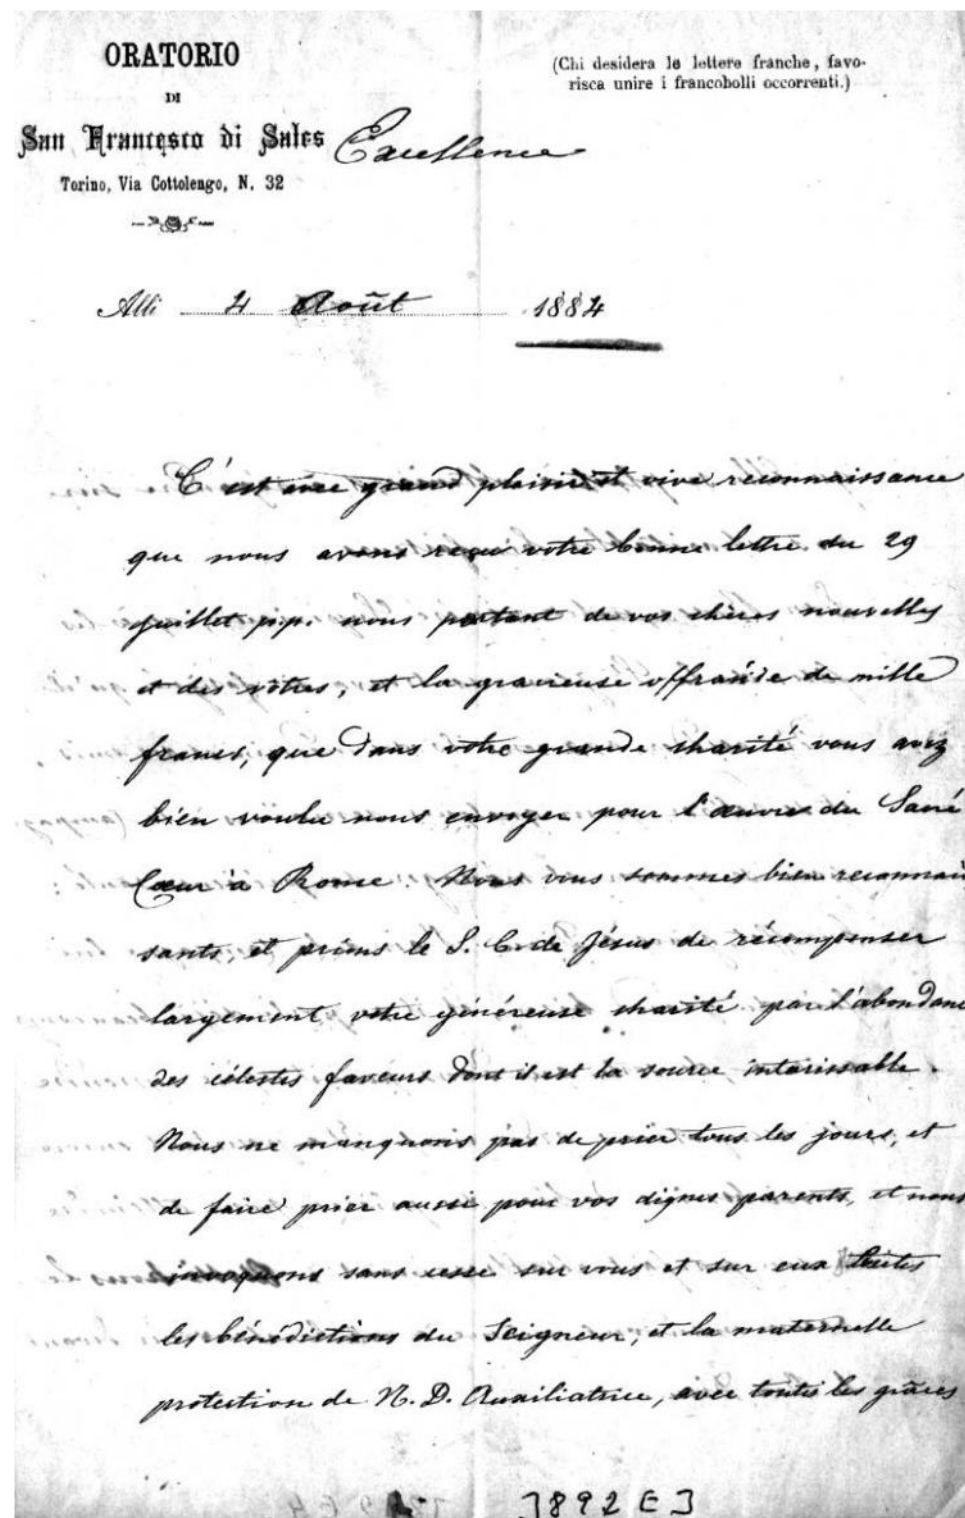 ORATORIO
DI
San Francesco di Sales
Torino, Via Cottolengo, N. 32
(Chi desidera le lettere franche, favo-
risca unire i francobolli occorrenti.)
Excellence
Alli 4 Août 1884
C'est avec grand plaisir et vive reconnaissance
que nous avons reçu votre bonne lettre du 29
juillet p.p. nous portant de vos chères nouvelles
et des vôtres, et la gracieuse offrande de mille
francs, que dans votre grande charité vous avez
bien voulu nous envoyer pour l'œuvre du Sacré
Cœur à Rome. Nous vous sommes bien reconnais
sants, et prions le S. C. de Jésus de récompenser
largement votre généreuse charité par l'abondance
des célestes faveurs dont il est la source intarissable.
Nous ne manquons pas de prier tous les jours, et
de faire prier aussi pour vos dignes parents, et nous
invoquons sans cesse sur vous et sur eux toutes
les bénédictions du Seigneur, et la maternelle
protection de N. D. Auxiliatrice, avec toutes les grâces
3892 E 3